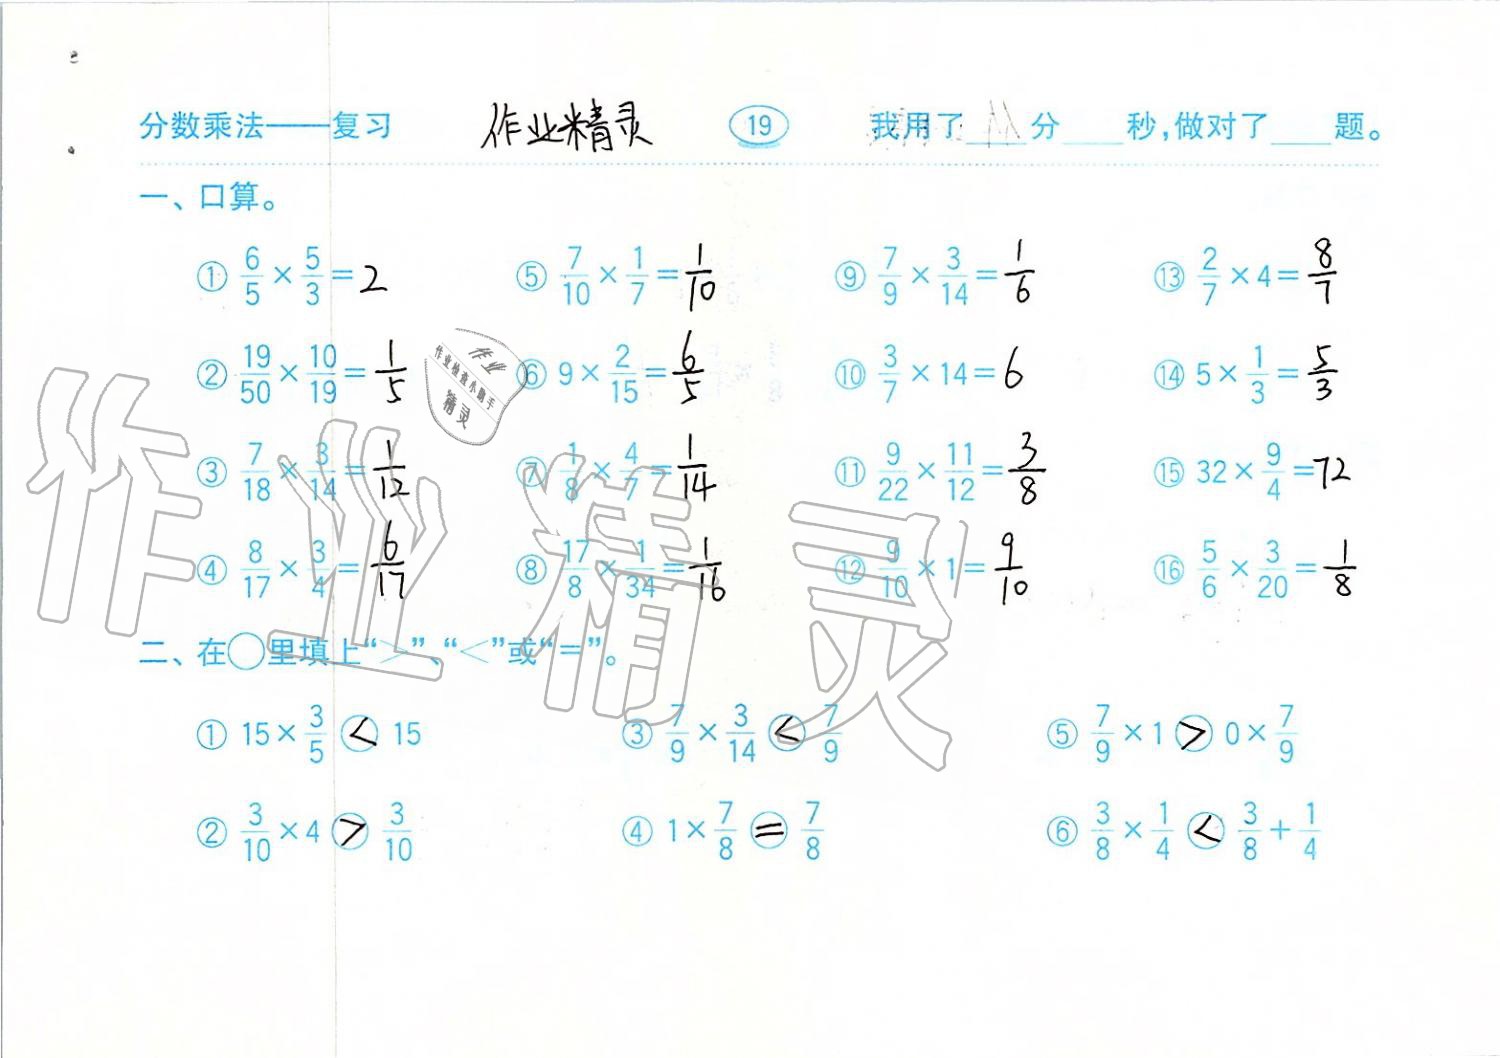 分数乘法——复习 作业精灵 19 我用了____分____秒,做对了____题。
一、口算。
① 6/5 × 5/3 = 2 ⑤ 7/10 × 1/7 = 1/10 ⑨ 7/9 × 3/14 = 1/6 ⑬ 2/7 × 4 = 8/7
② 19/50 × 10/19 = 1/5 ⑥ 9 × 2/15 = 6/5 ⑩ 3/7 × 14 = 6 ⑭ 5 × 1/3 = 5/3
③ 7/18 × 3/14 = 1/12 ⑦ 1/8 × 4/7 = 1/14 ⑪ 9/22 × 11/12 = 3/8 ⑮ 32 × 9/4 = 72
④ 8/17 × 3/4 = 6/17 ⑧ 17/8 × 1/34 = 1/16 ⑫ 9/10 × 1 = 9/10 ⑯ 5/6 × 3/20 = 1/8
二、在○里填上“>”、“<”或“=”。
① 15 × 3/5 < 15 ③ 7/9 × 3/14 < 7/9 ⑤ 7/9 × 1 > 0 × 7/9
② 3/10 × 4 > 3/10 ④ 1 × 7/8 = 7/8 ⑥ 3/8 × 1/4 < 3/8 + 1/4
作业
作业检查小助手
精灵
作业精灵